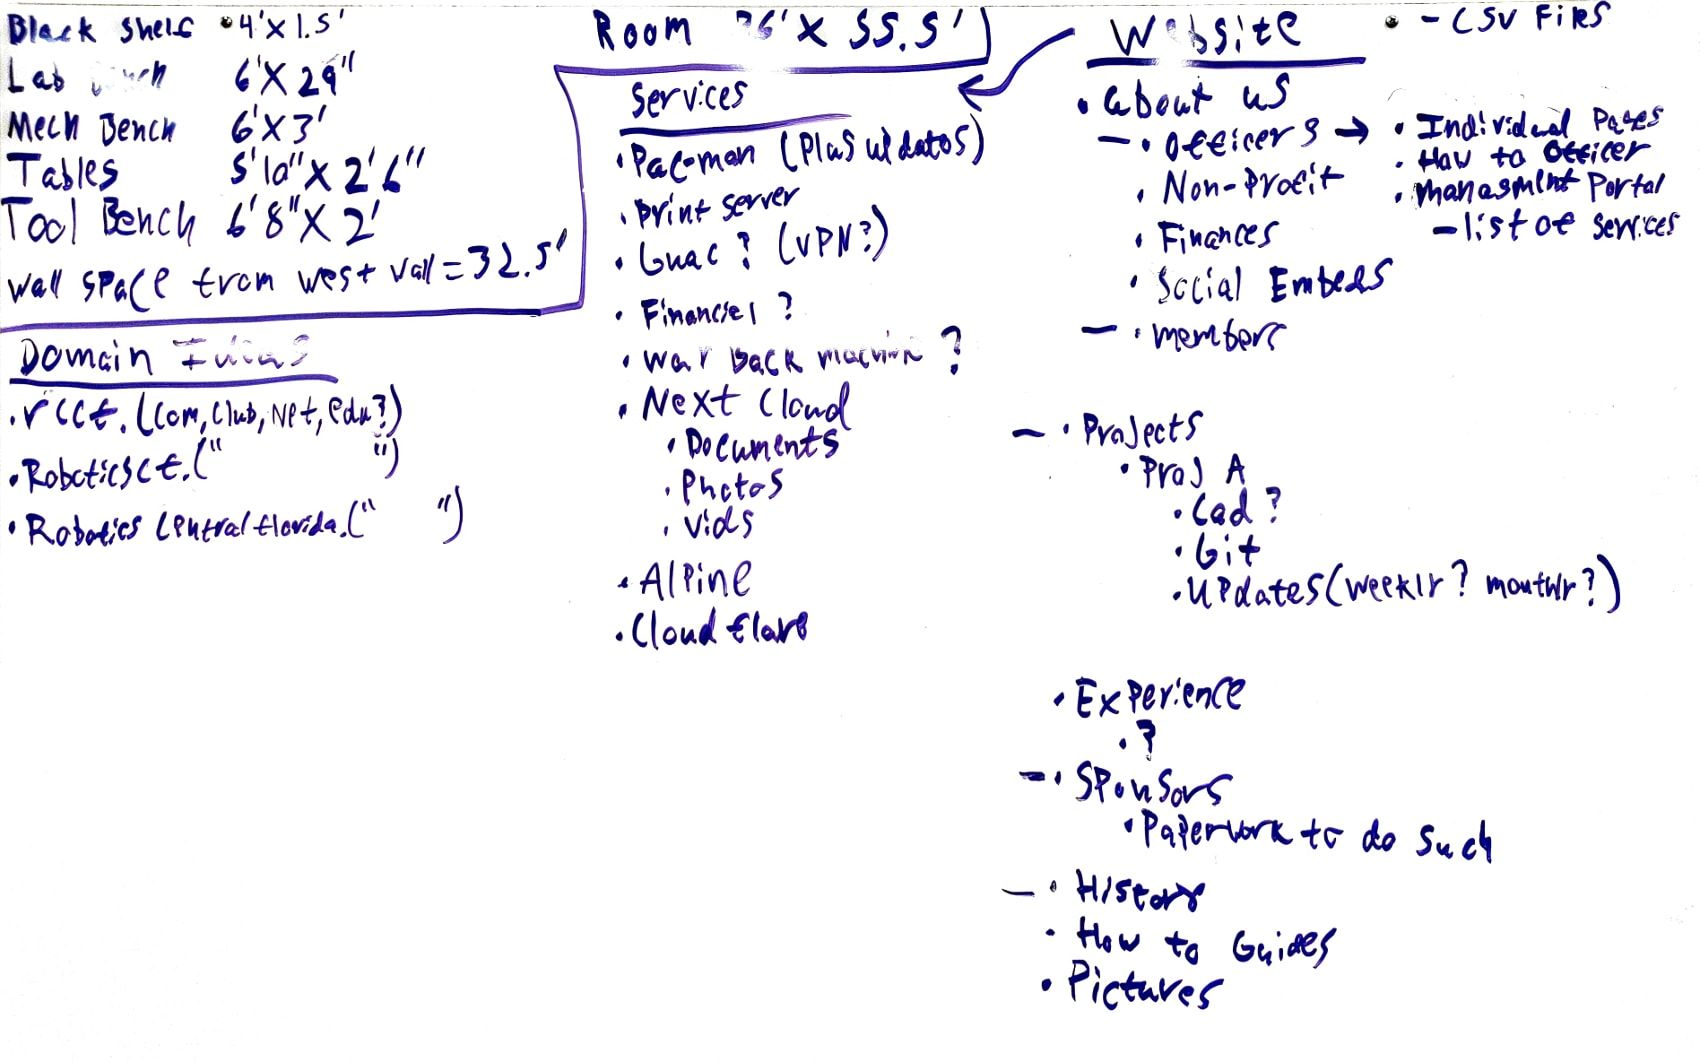 Black Shelf • 4' X 1.5'
Lab Bench 6' X 29"
Mech Bench 6' X 3'
Tables 5' 10" X 2' 6"
Tool Bench 6' 8" X 2'
wall space from west wall = 32.5'
Domain Ideas
• rccf. (com, club, net, edu?)
• Roboticscf. (" ")
• Robotics Central florida. (" ")
Room 36' X 55.5'
Services
• Pac-man (Plus updates)
• Print server
• Guac ? (VPN?)
• Financial ?
• way back machine ?
• Next Cloud
• Documents
• Photos
• Vids
• Alpine
• Cloud flare
Website
• about us
— • officers → • Individual Pages
• How to officer
• managment Portal
— list of services
• Non-Profit
• Finances
• Social Embeds
— • members
— • Projects
• Proj A
• Cad ?
• Git
• updates (weekly? monthly?)
• Experience
• ?
— • Sponsors
• Paperwork to do such
— • History
• How to Guides
• Pictures
• — CSV Files